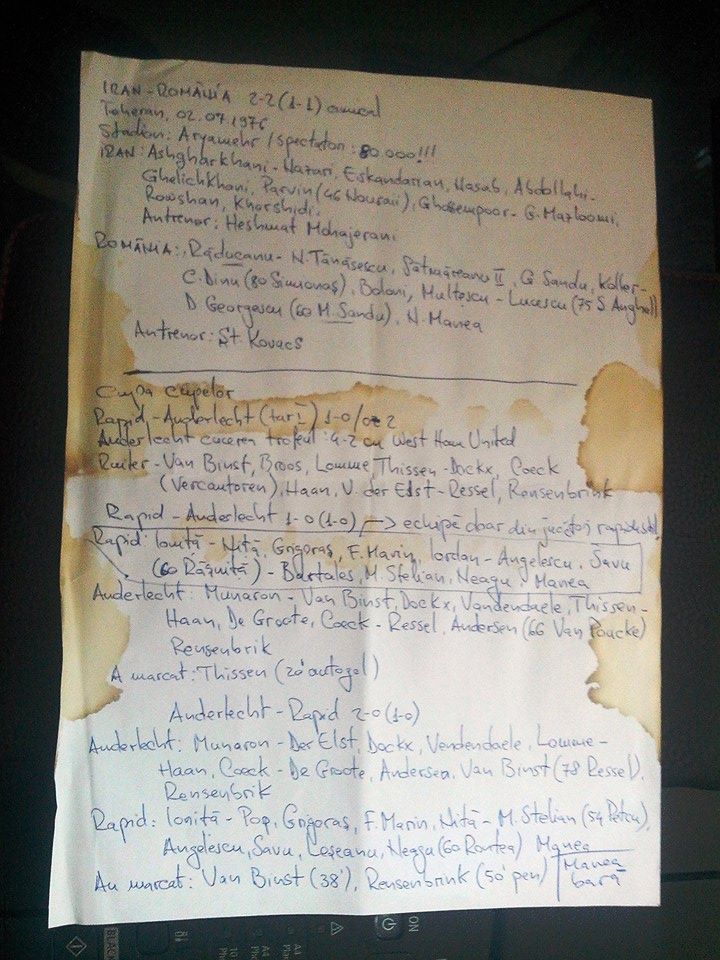 IRAN-ROMÂNIA 2-2(1-1) amical
Teheran, 02.07.1976
Stadion: Aryamehr / Spectatori: 80.000!!!
IRAN: Ashgharkhani - Nazari, Eskandarian, Hasab, Abdollahi -
Ghelichkhani, Parvin (46 Nouraii), Ghasempoor - G. Mazloomi,
Rowshan, Khorshidi.
Antrenor: Heshmat Mohajerani
ROMÂNIA: Răducanu - N. Tănăsescu, Sătmăreanu II, G Sandu, Koller -
C. Dinu (80 Simionaș), Boloni, Multescu - Lucescu (75 S Anghel)
D Georgescu (60 M. Sandu), N. Manea
Antrenor: Șt Kovacs
Cupa cupelor
Rapid - Anderlecht (tur I) 1-0 / 0-2
Anderlecht cucerea trofeul: 4-2 cu West Ham United
Ruiter - Van Binst, Broos, Lomme, Thissen - Dockx, Coeck
(Vercauteren), Haan, V. der Elst - Ressel, Rensenbrink
Rapid - Anderlecht 1-0 (1-0) → echipă doar din jucători rapidiști
Rapid: Ioniță - Niță, Grigoraș, F. Marin, Iordan - Angelescu, Savu
(60 Râșniță) - Bartales, M. Stelian, Neagu, Manea
Anderlecht: Munaron - Van Binst, Dockx, Vandendaele, Thissen -
Haan, De Groote, Coeck - Ressel, Andersen (66 Van Poucke)
Rensenbrik
A marcat: Thissen (20' autogol)
Anderlecht - Rapid 2-0 (1-0)
Anderlecht: Munaron - Der Elst, Dockx, Vendendaele, Lomme -
Haan, Coeck - De Groote, Andersen, Van Binst (78 Ressel),
Rensenbrik
Rapid: Ioniță - Pop, Grigoraș, F. Marin, Niță - M. Stelian (54 Petcu),
Angelescu, Savu, Leșeanu, Neagu (60 Rontea) Manea
Au marcat: Van Binst (38'), Rensenbrink (50' pen)
Manea
bară
ON